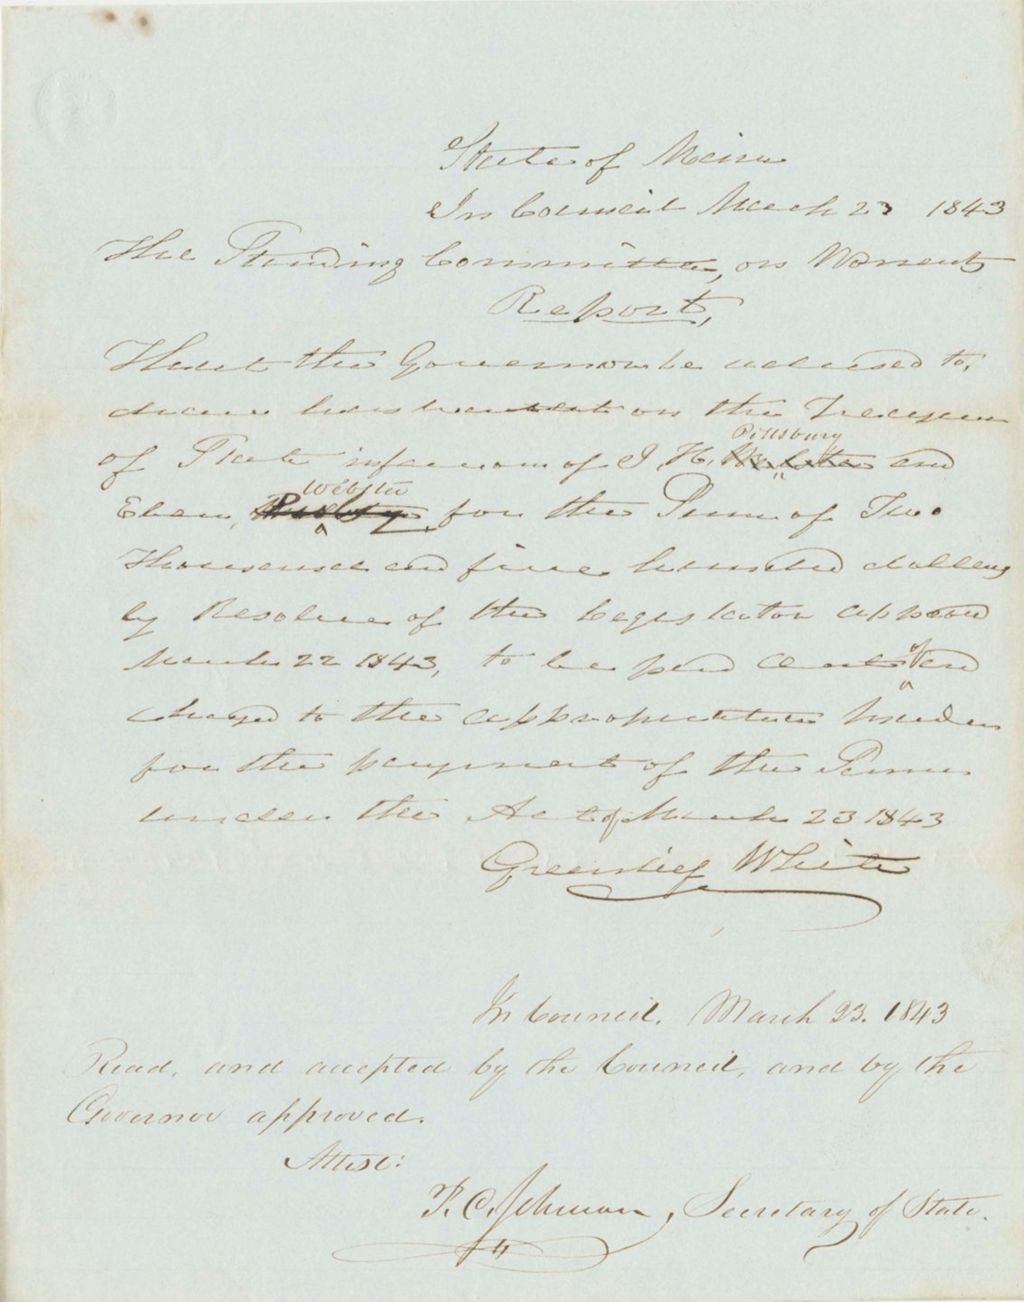 State of Maine
In Council March 23 1843
The Standing Committee, on Warrants
Report,
That the Governor be advised to,
draw his warrant on the Treasurer
of State in favour of J. H. Webster Pillsbury and
Eben, Webster for the Sum of Two
Thousand and five hundred dollars
by Resolve of the Legislature approved
March 22 1843, to be paid out of and
charged to the appropriation made
for the payment of the Same
under the Act of March 23 1843
Greenlief White
In Council, March 23. 1843
Read, and accepted by the Council, and by the
Governor approved.
Attest:
P. C. Johnson, Secretary of State.